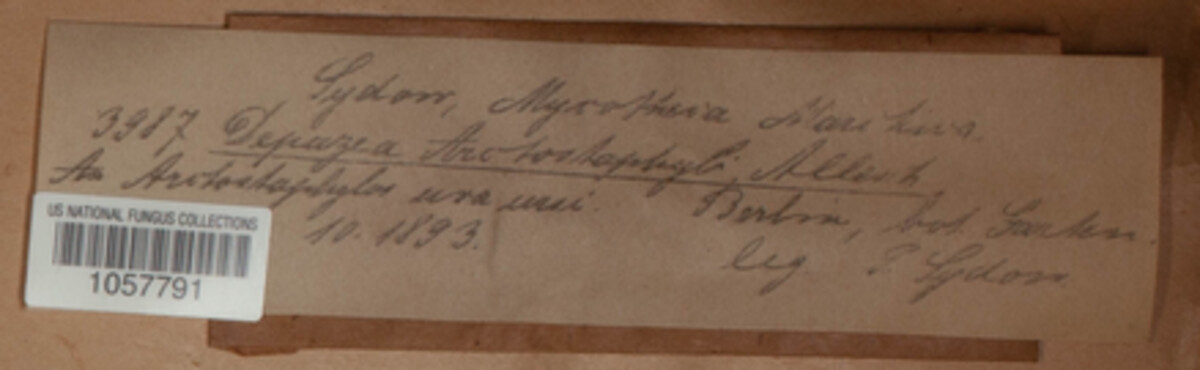 Sydow, Mycotheca Marchica.
3987 Depazea Arctostaphyli Allesch
An Arctostaphylos uva ursi. Berlin, bot. Garten.
10. 1893.
leg P. Sydow
US NATIONAL FUNGUS COLLECTIONS
1057791